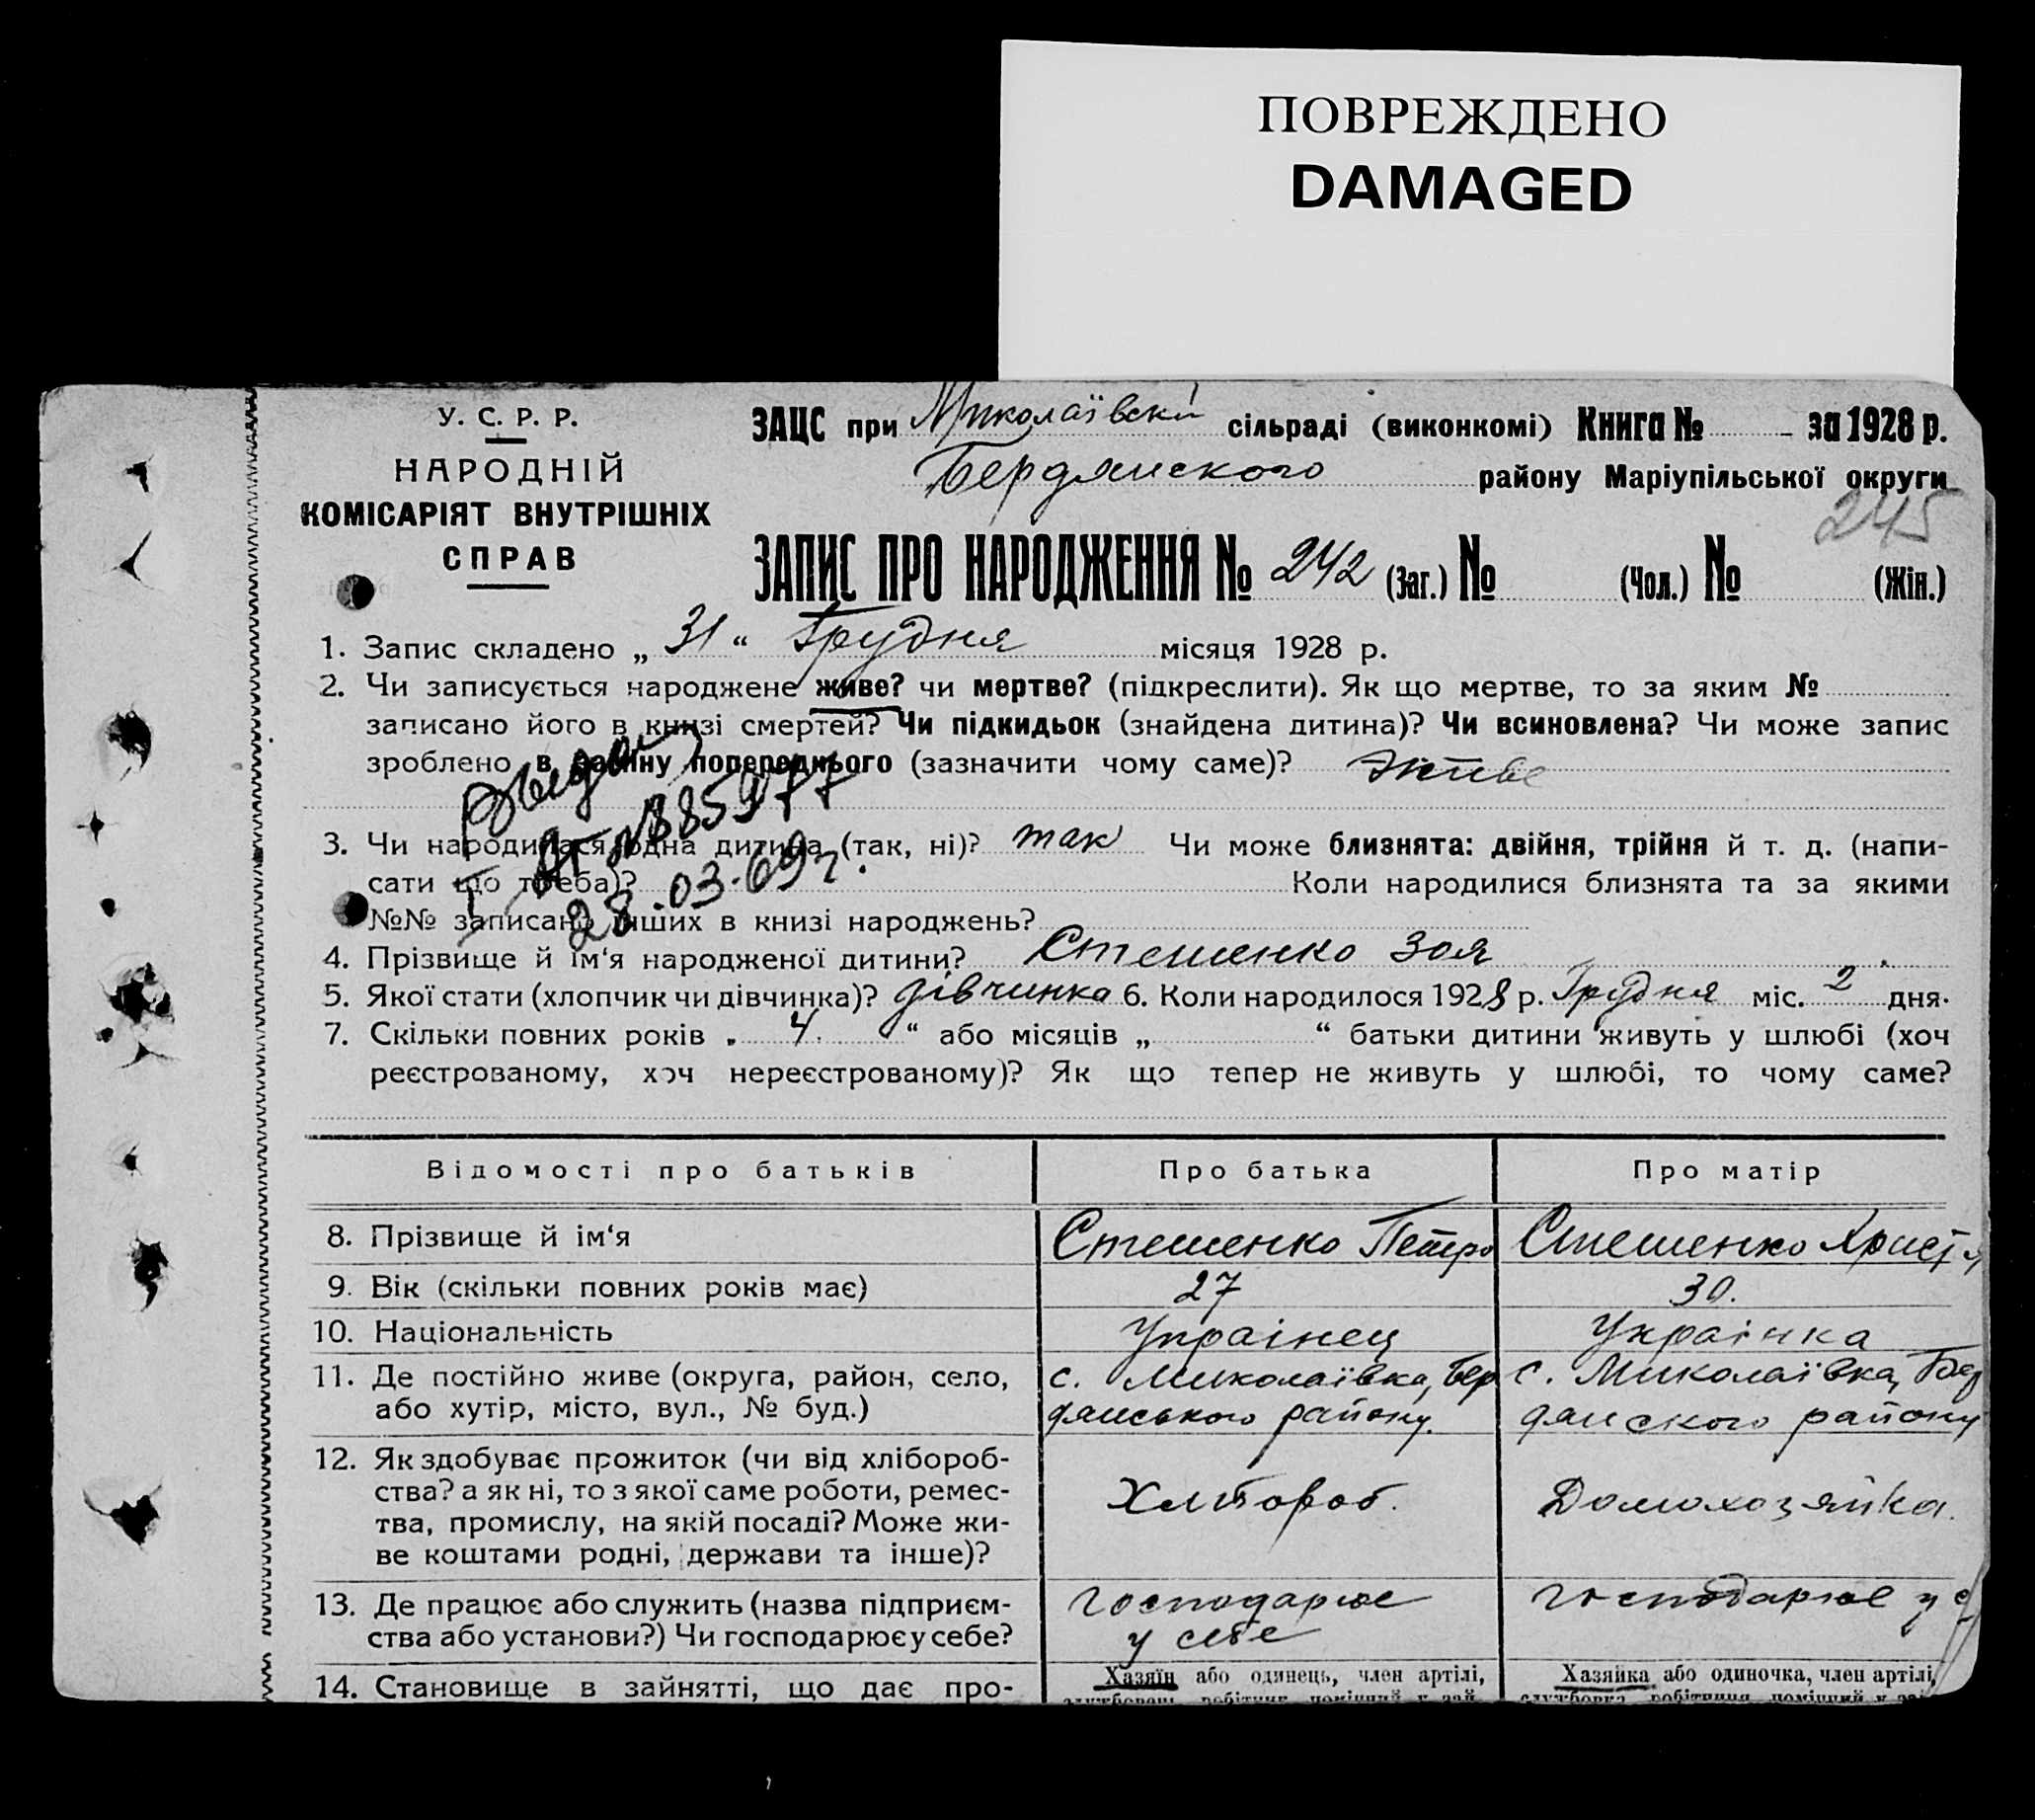 ПОВРЕЖДЕНО
DAMAGED
У. С. Р. Р.
НАРОДНІЙ
КОМІСАРІЯТ ВНУТРІШНІХ
СПРАВ
ЗАЦС при Миколаївскі сільраді (виконкомі) Книга № за 1928 р.
Бердянского району Маріупільської округи
245
ЗАПИС ПРО НАРОДЖЕННЯ № 242 (Заг.) № (Чол.) № (Жін.)
1. Запис складено „ 31 “ Грудня місяця 1928 р.
2. Чи записується народжене живе? чи мертве? (підкреслити). Як що мертве, то за яким №
записано його в книзі смертей? Чи підкидьок (знайдена дитина)? Чи всиновлена? Чи може запис
зроблено в заміну попереднього (зазначити чому саме)? живе
885977
28.03.69г.
3. Чи народилася одна дитина (так, ні)? так Чи може близнята: двійня, трійня й т. д. (напи-
сати що треба)? Коли народилися близнята та за якими
№№ записано інших в книзі народжень?
4. Прізвище й ім‘я народженої дитини? Стешенко Зоя
5. Якої стати (хлопчик чи дівчинка)? дівчинка 6. Коли народилося 1928 р. Грудня міс. 2 дня.
7. Скільки повних років „ 4. “ або місяців „ “ батьки дитини живуть у шлюбі (хоч
реєстрованому, хоч нереєстрованому)? Як що тепер не живуть у шлюбі, то чому саме?
Відомості про батьків Про батька Про матір
8. Прізвище й ім‘я Стешенко Петро Стешенко Христя
9. Вік (скільки повних років має) 27 30.
10. Національність Українец Українка
11. Де постійно живе (округа, район, село, с. Миколаївка, Бер с. Миколаївка, Бер
або хутір, місто, вул., № буд.) дянського району. дянского району
12. Як здобуває прожиток (чи від хлібороб-
ства? а як ні, то з якої саме роботи, ремес- Хлібороб. Домохозяйка.
тва, промислу, на якій посаді? Може жи-
ве коштами родні, держави та інше)?
13. Де працює або служить (назва підприєм- господарює господарює у с
ства або установи?) Чи господарює у себе? у себе
14. Становище в зайнятті, що дає про- Хазяїн або одинець, член артілі, Хазяйка або одиночка, член артілі,